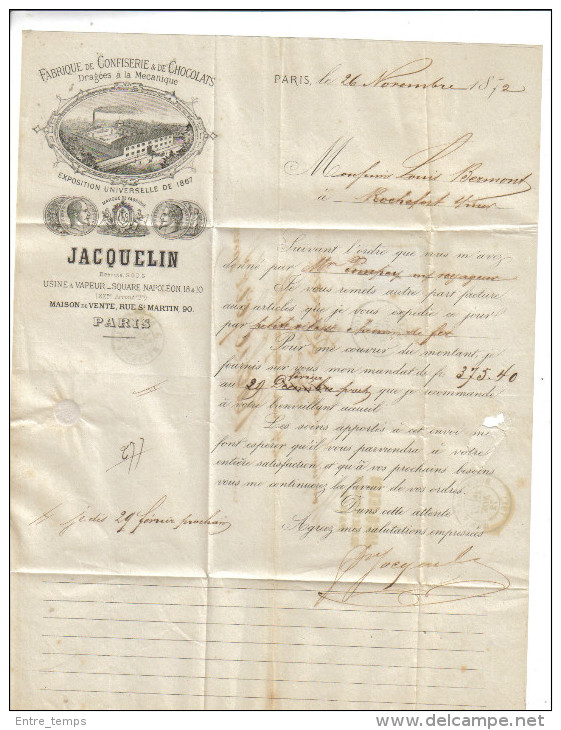 FABRIQUE DE CONFISERIE & DE CHOCOLATS
Dragées à la Mécanique
EXPOSITION UNIVERSELLE DE 1867
MARQUE DE FABRIQUE
JACQUELIN
USINE A VAPEUR _ SQUARE NAPOLÉON, 18 & 20
MAISON DE VENTE, RUE St MARTIN, 90.
PARIS
PARIS, le 26 Novembre 1872
Monsieur Louis Bermont
à Rochefort
Suivant l'ordre que nous m'avez
donné par Mr mon voyageur
Je vous remets autre part facture
aux articles que je vous expédie ce jour
par petite vitesse chemin de fer
Pour me couvrir du montant, je
fournis sur vous mon mandat de fr 375.40
au 29 février proch que je recommande
à votre bienveillant accueil.
Les soins apportés à cet envoi me
font espérer qu'il vous parviendra à votre
entière satisfaction et qu'à vos prochains besoins
vous me continuerez la faveur de vos ordres.
Dans cette attente
Agréez mes salutations empressées
Jacquelin
677
je dis 29 février prochain
Entre_temps
www.delcampe.net